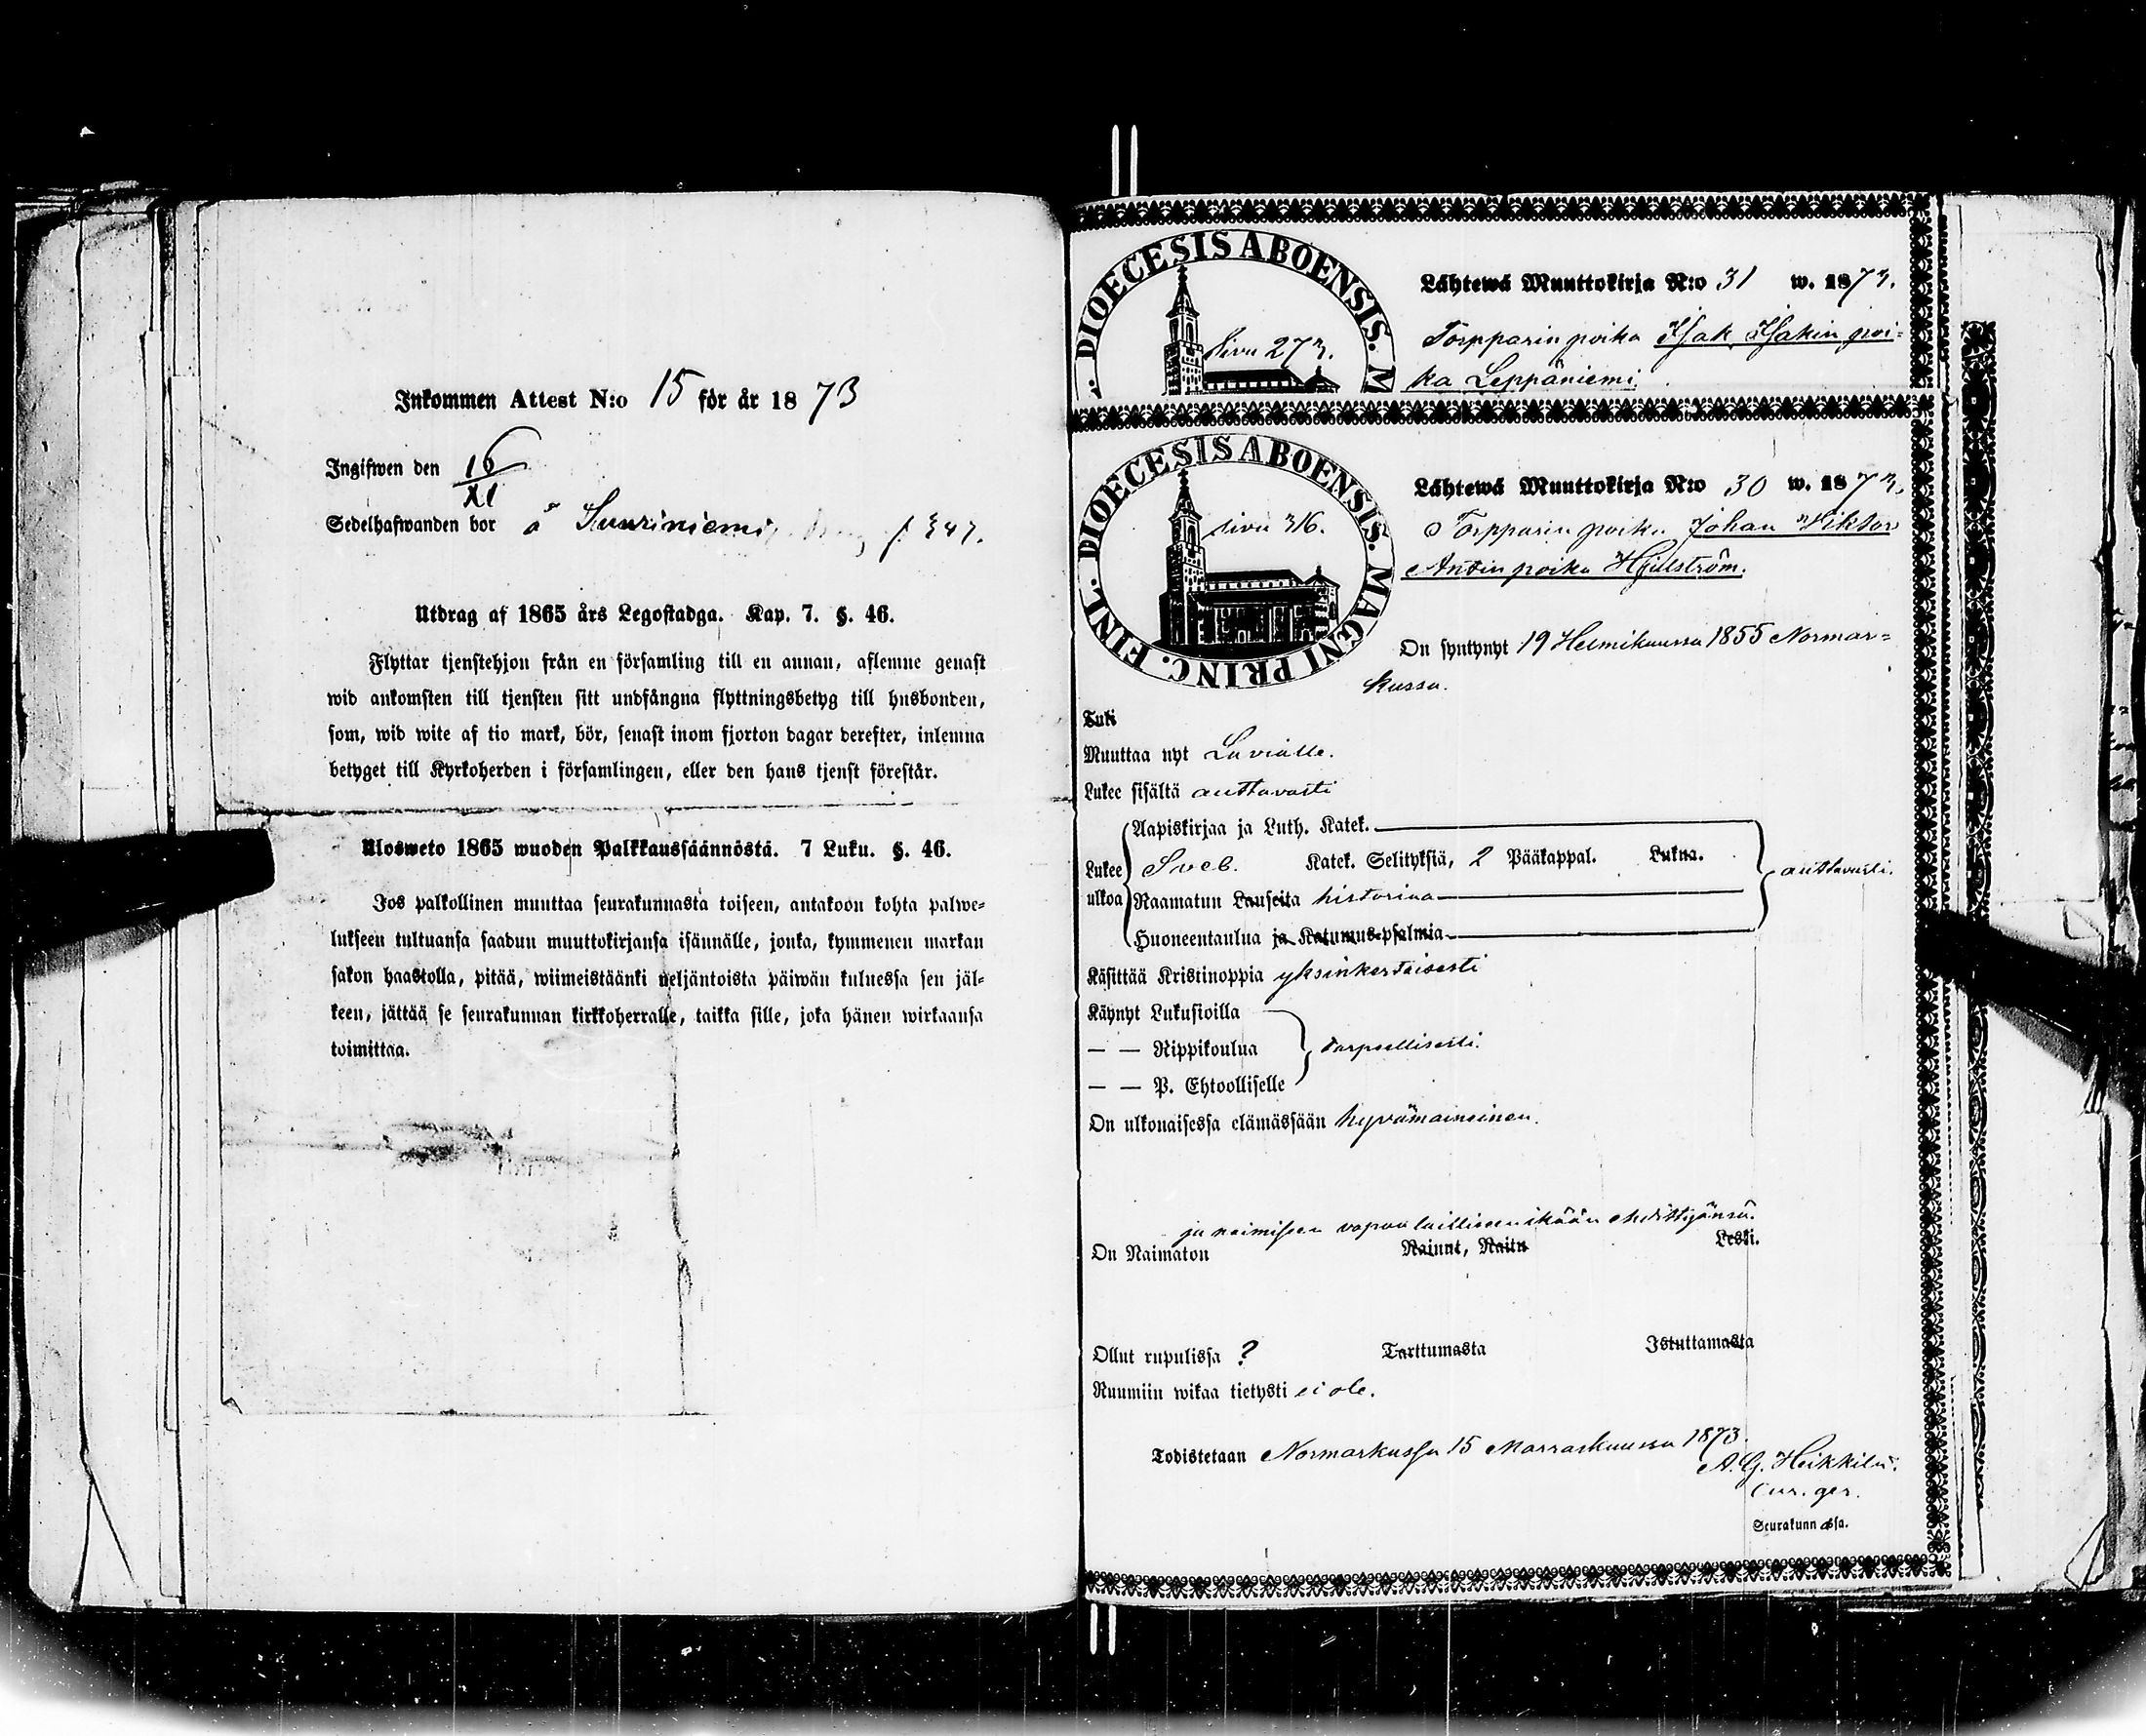 Inkommen Attest N:o 15 för år 1873
Ingifwen den 16/XI
Sedelhafwanden bor å Suuriniemi
Utdrag af 1865 års Legostadga. Kap. 7. §. 46.
Flyttar tjenstehjon från en församling till en annan, aflemne genast
wid ankomsten till tjensten sitt undfångna flyttningsbetyg till husbonden,
som, wid wite af tio mark, bör, senast inom fjorton dagar derefter, inlemna
betyget till Kyrkoherden i församlingen, eller den hans tjenst förestår.
Ulosweto 1865 wuoden Palkkaussäännöstä. 7 Luku. §. 46.
Jos palkollinen muuttaa seurakunnasta toiseen, antakoon kohta palwe-
lukseen tultuansa saadun muuttokirjansa isännälle, jonka, kymmenen markan
sakon haastolla, pitää, wiimeistäänki neljäntoista päiwän kuluessa sen jäl-
keen, jättää se seurakunnan kirkkoherralle, taikka sille, joka hänen wirkaansa
toimittaa.
DIOECESIS ABOENSIS. M
Sivu 273.
Lähtewä Muuttokirja N:o 31 w. 1873.
Torpparin poika Isak Isakin poi-
ka Leppäniemi
DIOECESIS ABOENSIS. MAGNI PRINC. FINL.
sivu 316.
Lähtewä Muuttokirja N:o 30 w. 1873.
Torpparin poika Johan Viktor
Antin poika Hjulström.
On syntynyt 19 Helmikuussa 1855 Normar-
kussa.
Tuli
Muuttaa nyt Lavialle.
Lukee sisältä auttavasti
Lukee ulkoa
Aapiskirjaa ja Luth. Katek.
Sveb. Katek. Selityksiä, 2 Pääkappal. Lukna.
Raamatun Lauseita historiaa
Huoneentaulua ja Katumus-psalmia
auttavasti.
Käsittää Kristinoppia yksinkertaisesti
Käynyt Lukusioilla
— — Rippikoulua
— — P. Ehtoolliselle
tarpeellisesti.
On ulkonaisessa elämässään hyvämaineinen.
ja naimiseen vapaa lailliseen ikään ehdittyänsä.
On Naimaton Nainut, Naitu Leski.
Ollut rupulissa ? Tarttumasta Istuttamasta
Ruumiin wikaa tietysti ei ole.
Todistetaan Normarkussa 15 Marraskuussa 1873.
A. G. Heikkilä.
Cur. ger.
Seurakunnassa.